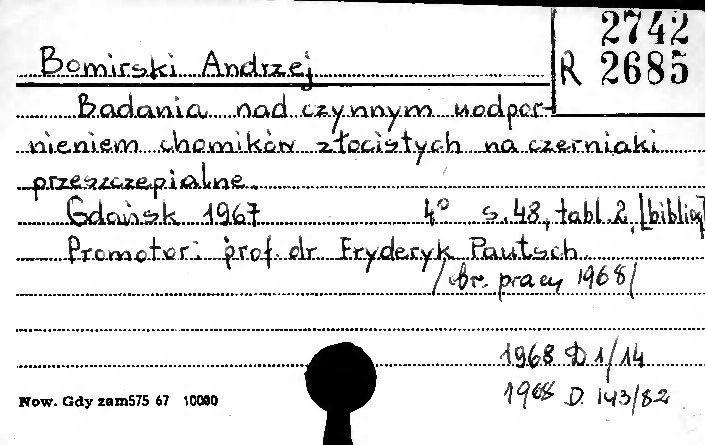 2742
Bomirski Andrzej R 2685
Badania nad czynnym uodpor-
nieniem chomików złocistych na czerniaki
przeszczepialne.
Gdańsk 1967 4° s. 48, tabl. 2, [bibliogr
Promotor: prof. dr Fryderyk Pautsch.
/ obr. pracy 1968/
1968 D 1/14
1968 D. 143/82
Now. Gdy zam575 67 10000